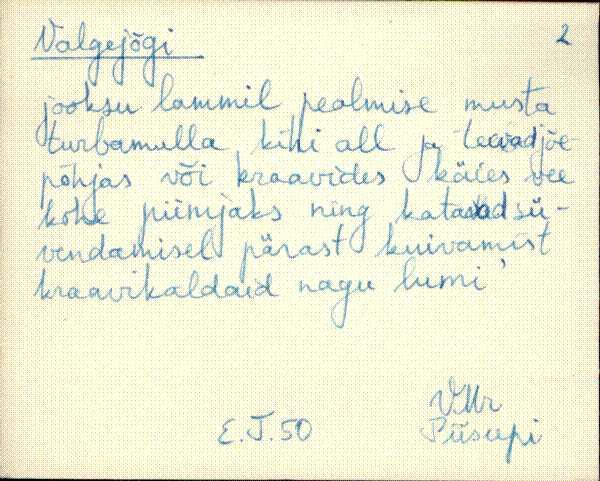 Valgejõgi
2
jooksu lammil pealmise musta
turbamulla kihi all ja teevad jõe-
põhjas või kraavides käies vee
kohe piimjaks ning katavad sü-
vendamisel pärast kuivamist
kraavikaldaid nagu lumi'
VMr
E.J.50 Piisupi